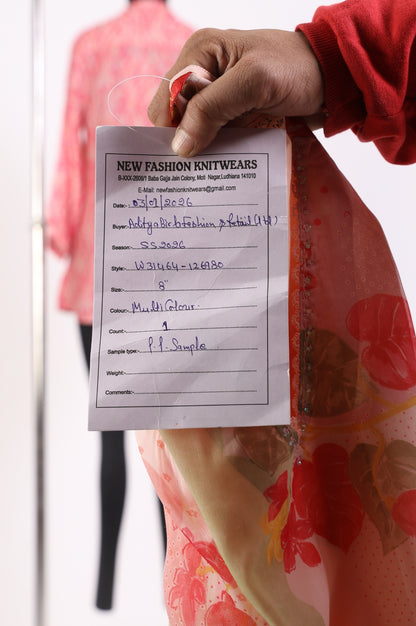 NEW FASHION KNITWEARS
B-XXX-2606/1 Baba Gajja Jain Colony, Moti Nagar, Ludhiana 141010
E-Mail: newfashionknitwears@gmail.com
Date:- 03/01/2026
Buyer:- Aditya Birla Fashion & Retail (Ltd)
Season:- SS 2026
Style:- W31464-126980
Size:- 8"
Colour:- Multi Colour.
Count:- 1
Sample type:- P.P. Sample
Weight:-
Comments:-